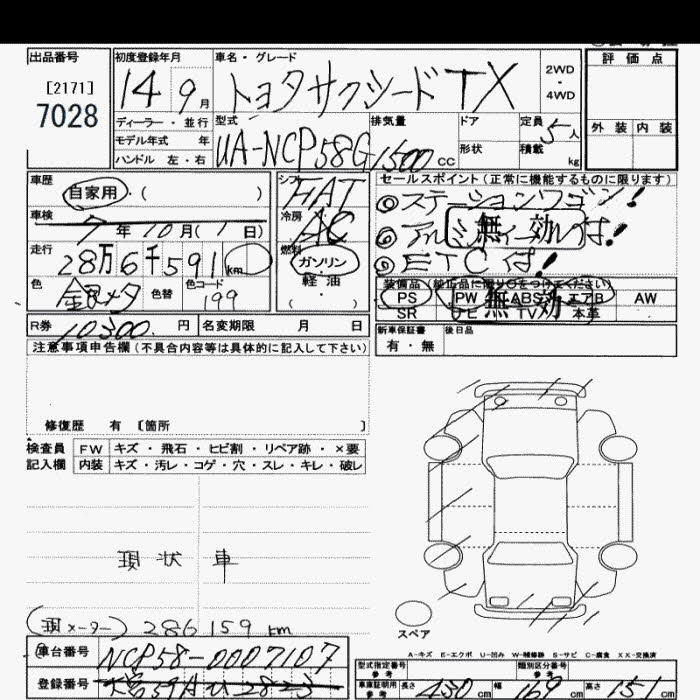 出品番号
[2171]
7028
初度登録年月
14 9月
車名・グレード
トヨタサクシードTX
2WD
・
4WD
評価点
外装 内装
ディーラー・並行
モデル年式 年
ハンドル 左・右
型式
UA-NCP58G
排気量
1500 cc
ドア
形状
定員 5人
積載 kg
車歴
自家用・( )
車検
7年10月(1日)
走行
28万6千591km
色
銀メタ
色替
色コード
199
シフト
FAT
冷房
AC
燃料
ガソリン
軽油
( )
セールスポイント(正常に機能するものに限ります)
◎ステーションワゴン!
◎アルミホイール付!
無効
◎ETC付!
装備品(純正品に限り○をつけてください)
PS PW ABS エアB AW
SR ナビ TV 本革
無効
R券 10300.円
名変期限 月 日
新車保証書
有・無
後日品
注意事項申告欄(不具合内容等は具体的に記入して下さい)
修復歴 有 〔箇所 〕
検査員
記入欄
FW キズ・飛石・ヒビ割・リペア跡・×要
内装 キズ・汚レ・コゲ・穴・スレ・キレ・破レ
現状車
(現メーター) 286159km
スペア
A-キズ E-エクボ U-凹み W-補修跡 S-サビ C-腐食 XX-交換済
車台番号
NCP58-0007107
登録番号
型式指定番号
参考
類別区分番号
参考
車庫証明用
参考
長さ 430cm 幅 169cm 高さ 151cm